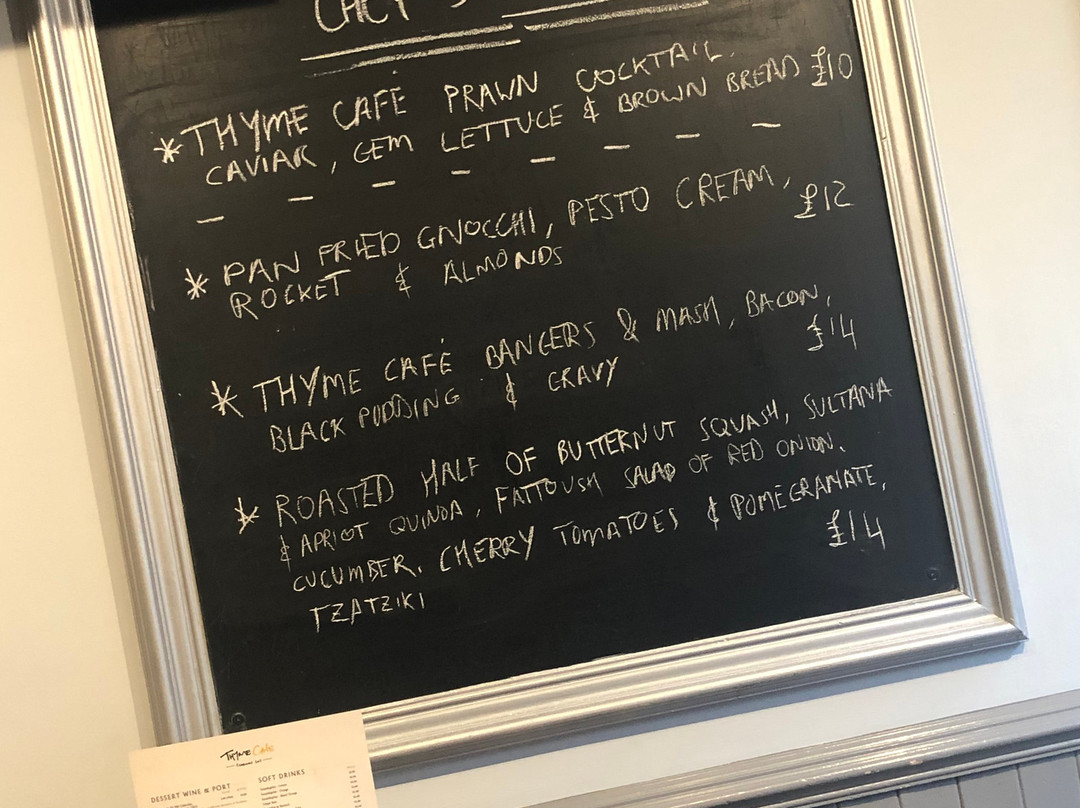 CHEF'S
*THYME CAFÉ PRAWN COCKTAIL,
CAVIAR, GEM LETTUCE & BROWN BREAD £10
* PAN FRIED GNOCCHI, PESTO CREAM,
ROCKET & ALMONDS £12
* THYME CAFÉ BANGERS & MASH, BACON,
BLACK PUDDING & GRAVY £14
* ROASTED HALF OF BUTTERNUT SQUASH, SULTANA
& APRICOT QUINOA, FATTOUSH SALAD OF RED ONION,
CUCUMBER, CHERRY TOMATOES & POMEGRANATE,
TZATZIKI £14
THYME Cafe
DESSERT WINE & PORT
SOFT DRINKS